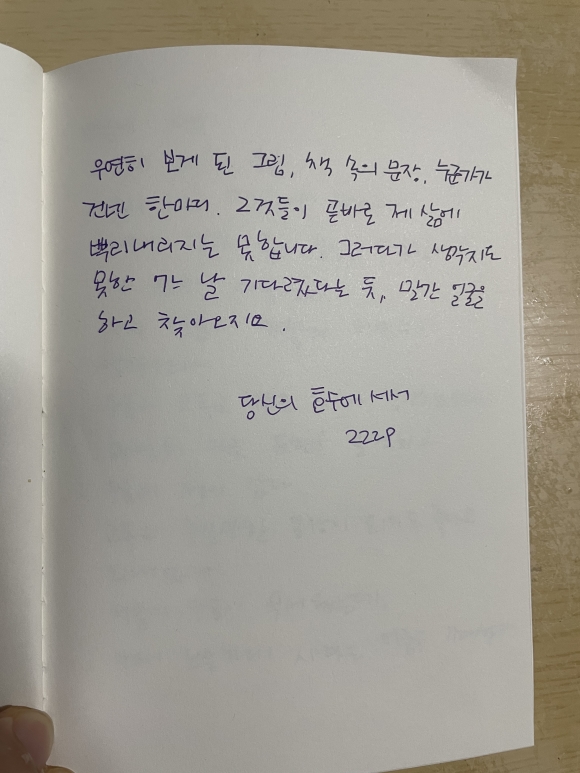 우연히 보게 된 그림, 책 속의 문장, 누군가가
건넨 한마디. 그것들이 곧바로 제 삶에
뿌리내리지는 못합니다. 그러다가 생각지도
못한 어느 날 기다렸다는 듯, 말간 얼굴을
하고 찾아오지요.
당신의 호수에서
222p